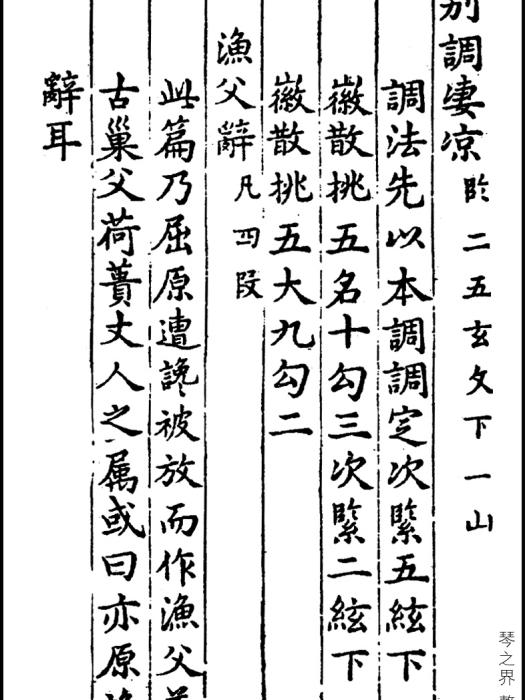 別調凄凉 二五玄 下一
調法先以本調調定次緊五絃下
徽散挑五名十勾三次緊二絃下
徽散挑五大九勾二
漁父辭 凡四段
此篇乃屈原遭讒被放而作漁父
古巢父荷蕢丈人之属或曰亦原
辭耳
琴之界